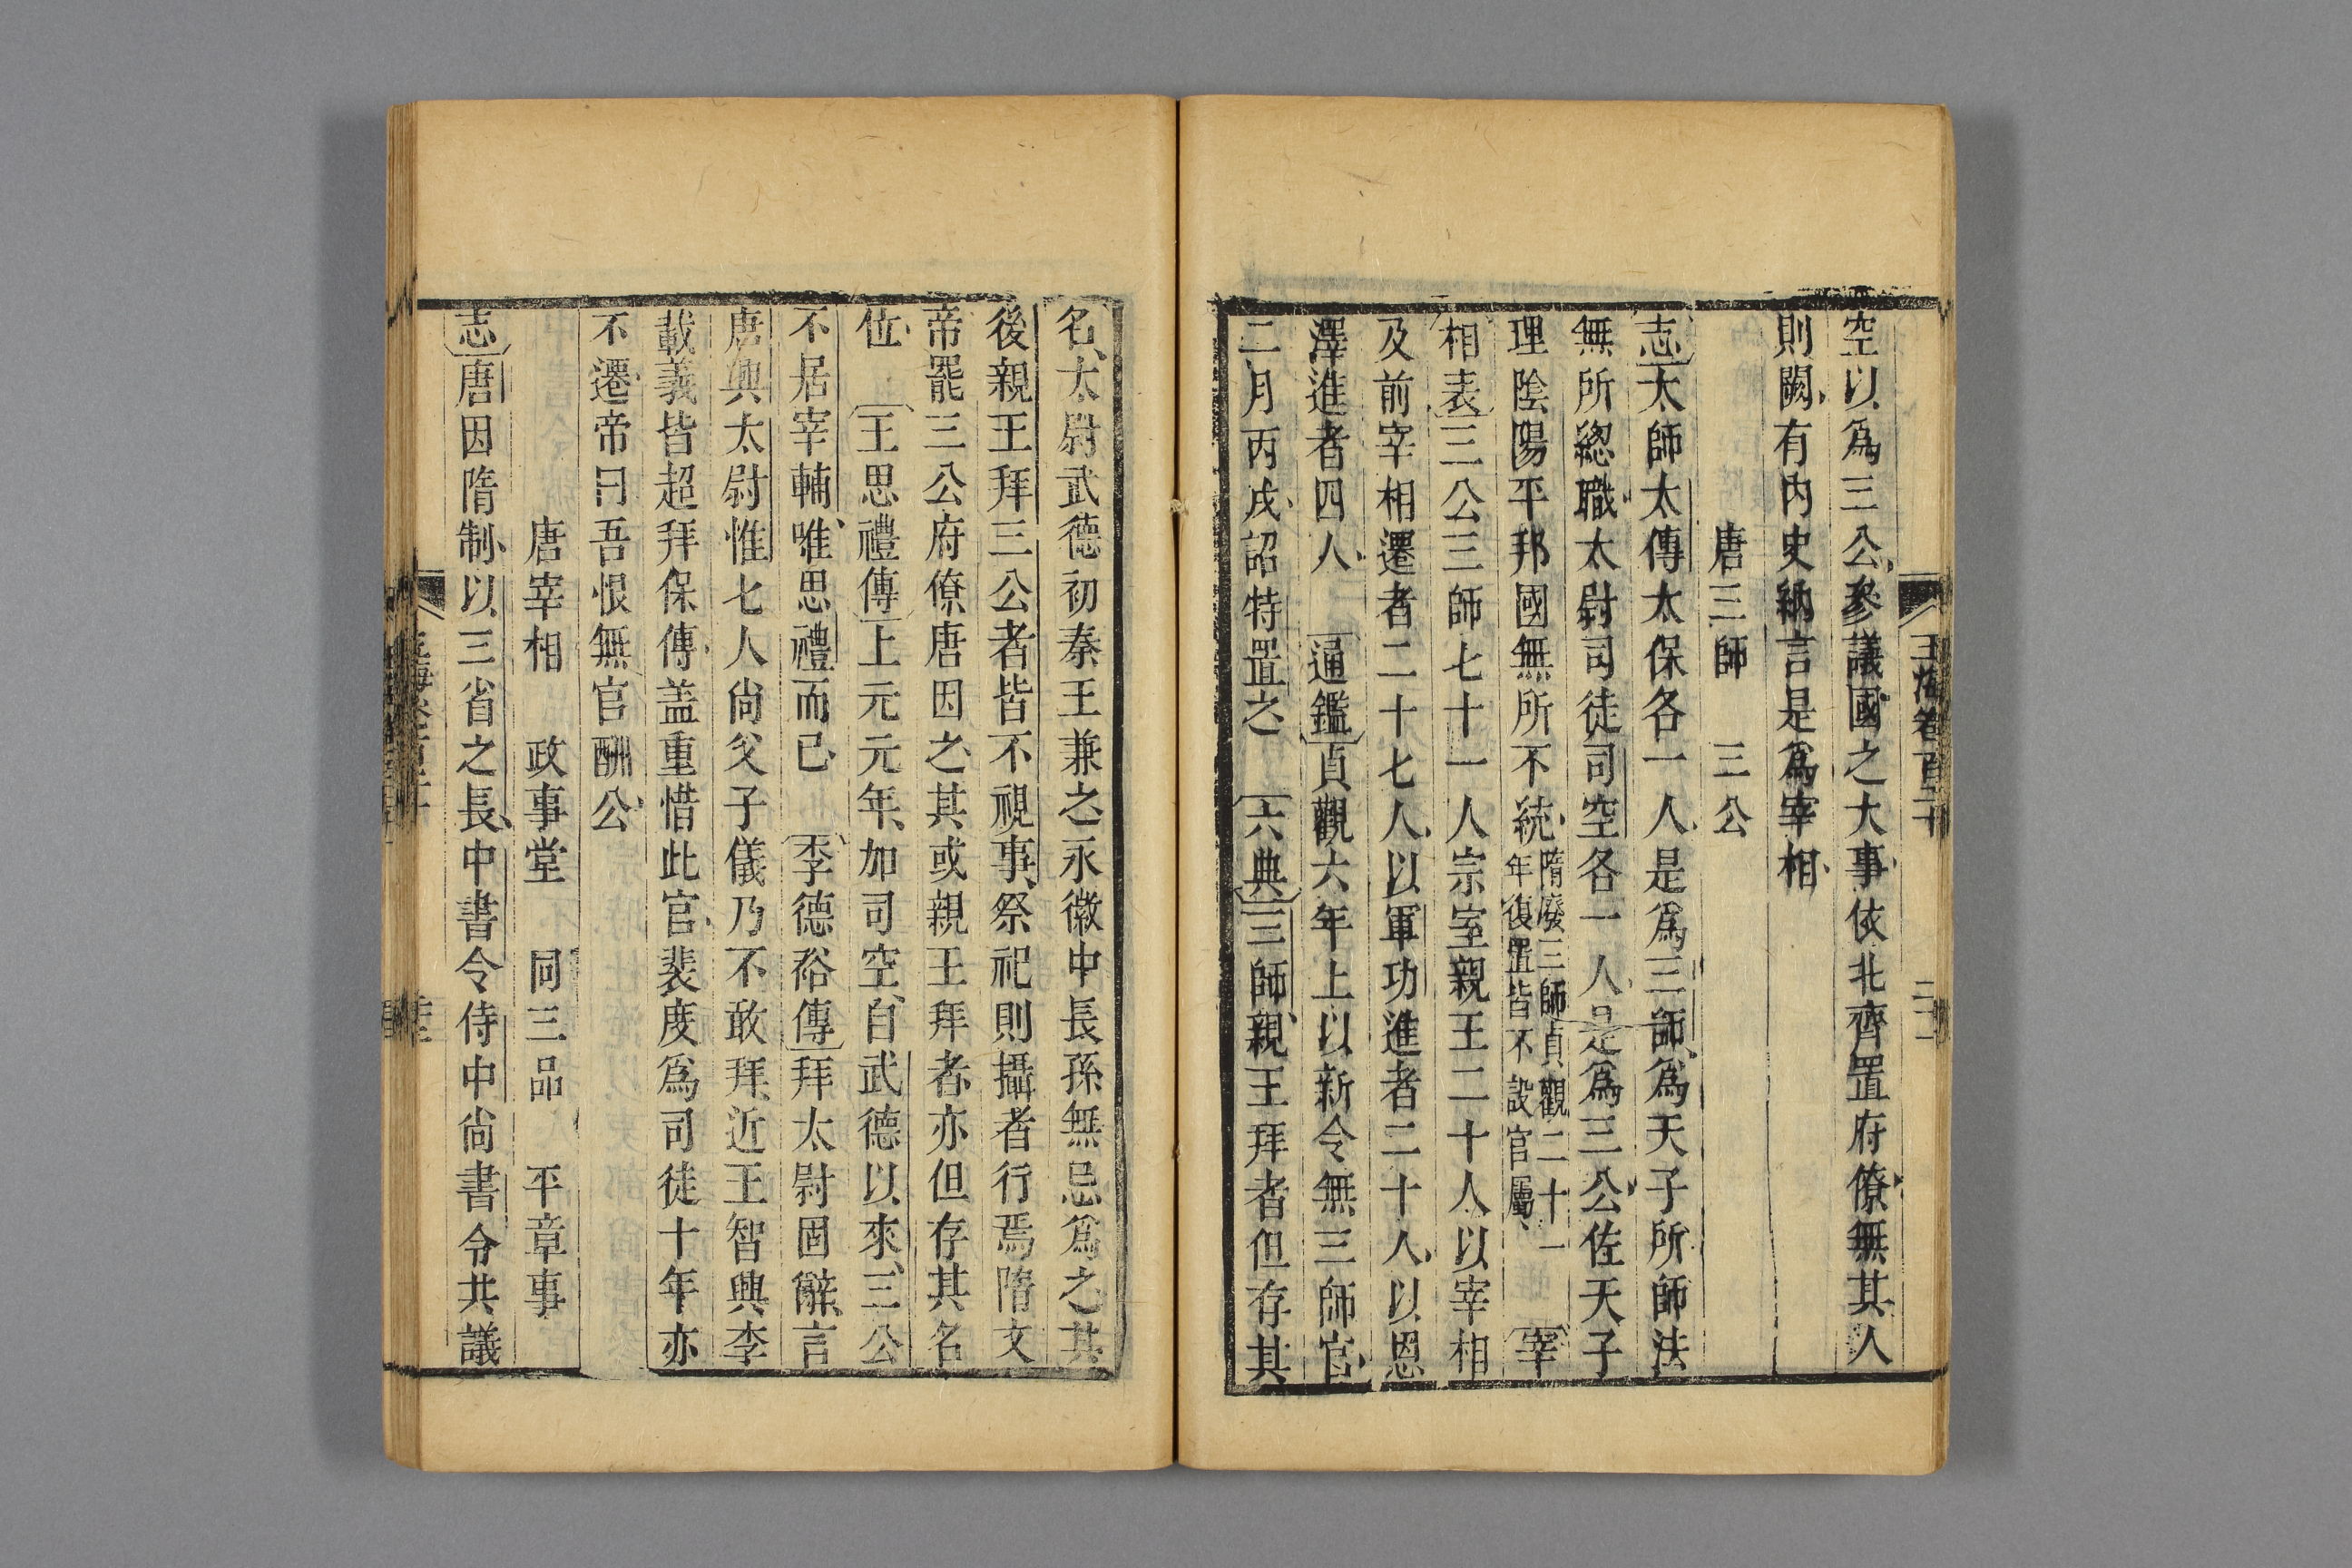 玉海卷百二十
空以爲三公參議國之大事依北齊置府僚無其人
則闕有内史納言是爲宰相
唐三師　三公
志太師太傅太保各一人是爲三師爲天子所師法
無所緫職太尉司徒司空各一人是爲三公佐天子
理陰陽平邦國無所不統隋廢三師貞觀十一年復置皆不設官屬宰
相表三公三師七十一人宗室親王二十人以宰相
及前宰相遷者二十七人以軍功進者二十人以恩
澤進者四人　通鑑貞觀六年上以新令無三師官
二月丙戌詔特置之　六典三師親王拜者但存其
名太尉武德初秦王兼之永徽中長孫無忌爲之其
後親王拜三公者皆不視事祭祀則攝者行焉隋文
帝罷三公府僚唐因之其或親王拜者亦但存其名
位　王思禮傳上元元年加司空自武德以來三公
不居宰輔唯思禮而已　李德裕傳拜太尉固辭言
唐興太尉惟七人尚父子儀乃不敢拜近王智興李
載義皆超拜保傅盖重惜此官裴度爲司徒十年亦
不遷帝曰吾恨無官酬公
唐宰相　政事堂　同三品　平章事
志唐因隋制以三省之長中書令侍中尚書令共議